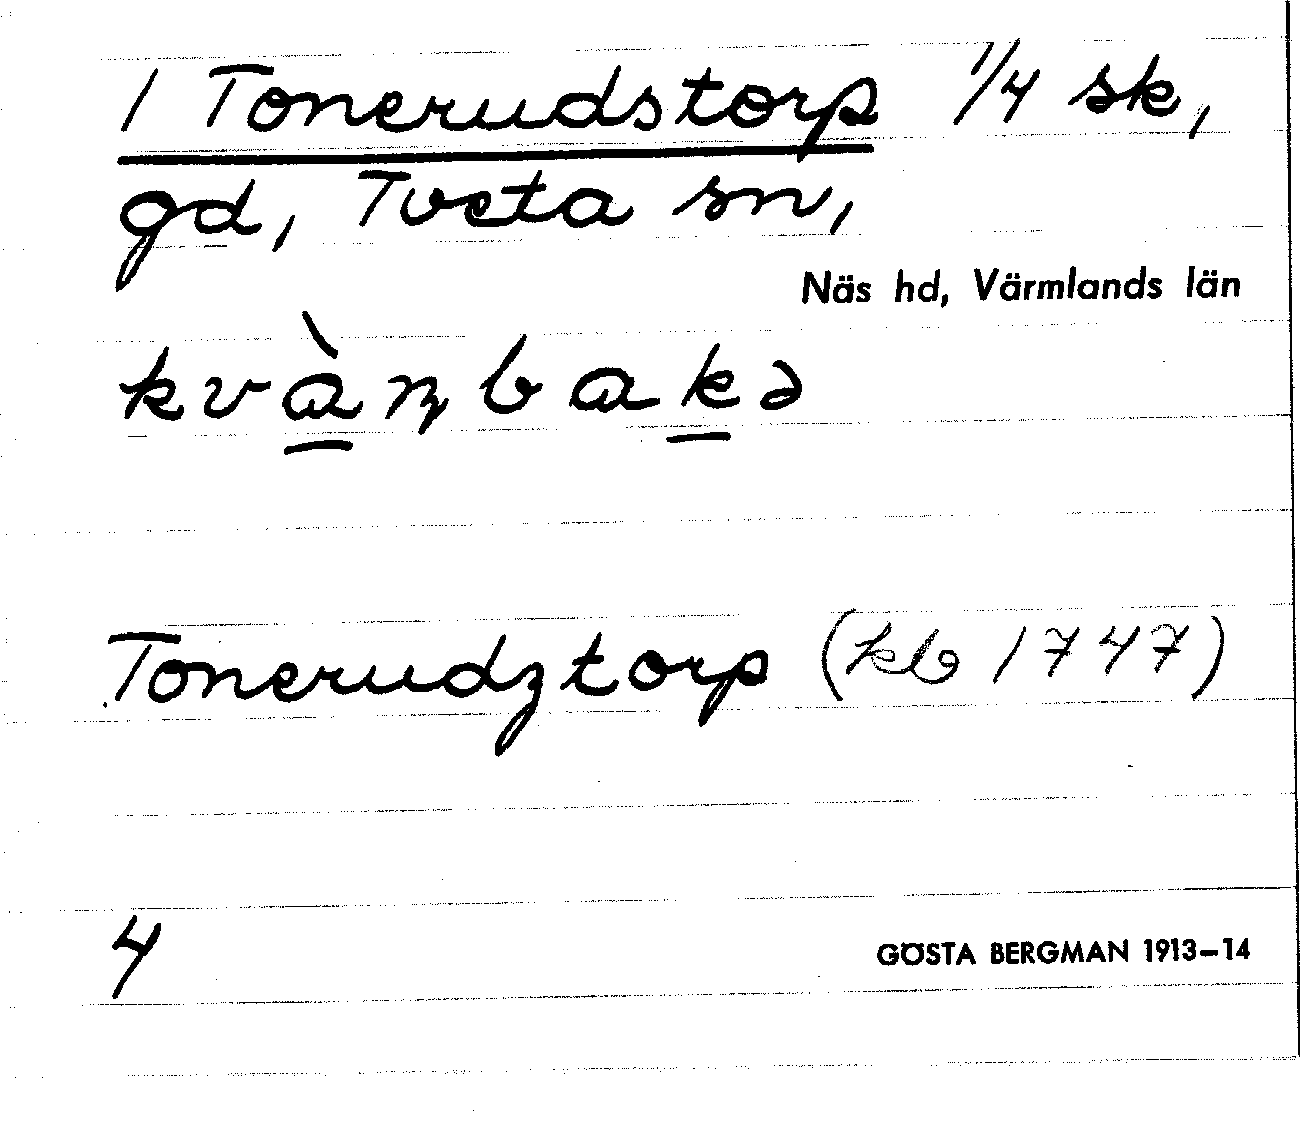 1 Tonerudstorp 1/4 sk,
gd, Tveta sn,
Näs hd, Värmlands län
kvàɳbakə
Tonerudztorp (kb 1747)
4
GÖSTA BERGMAN 1913–14